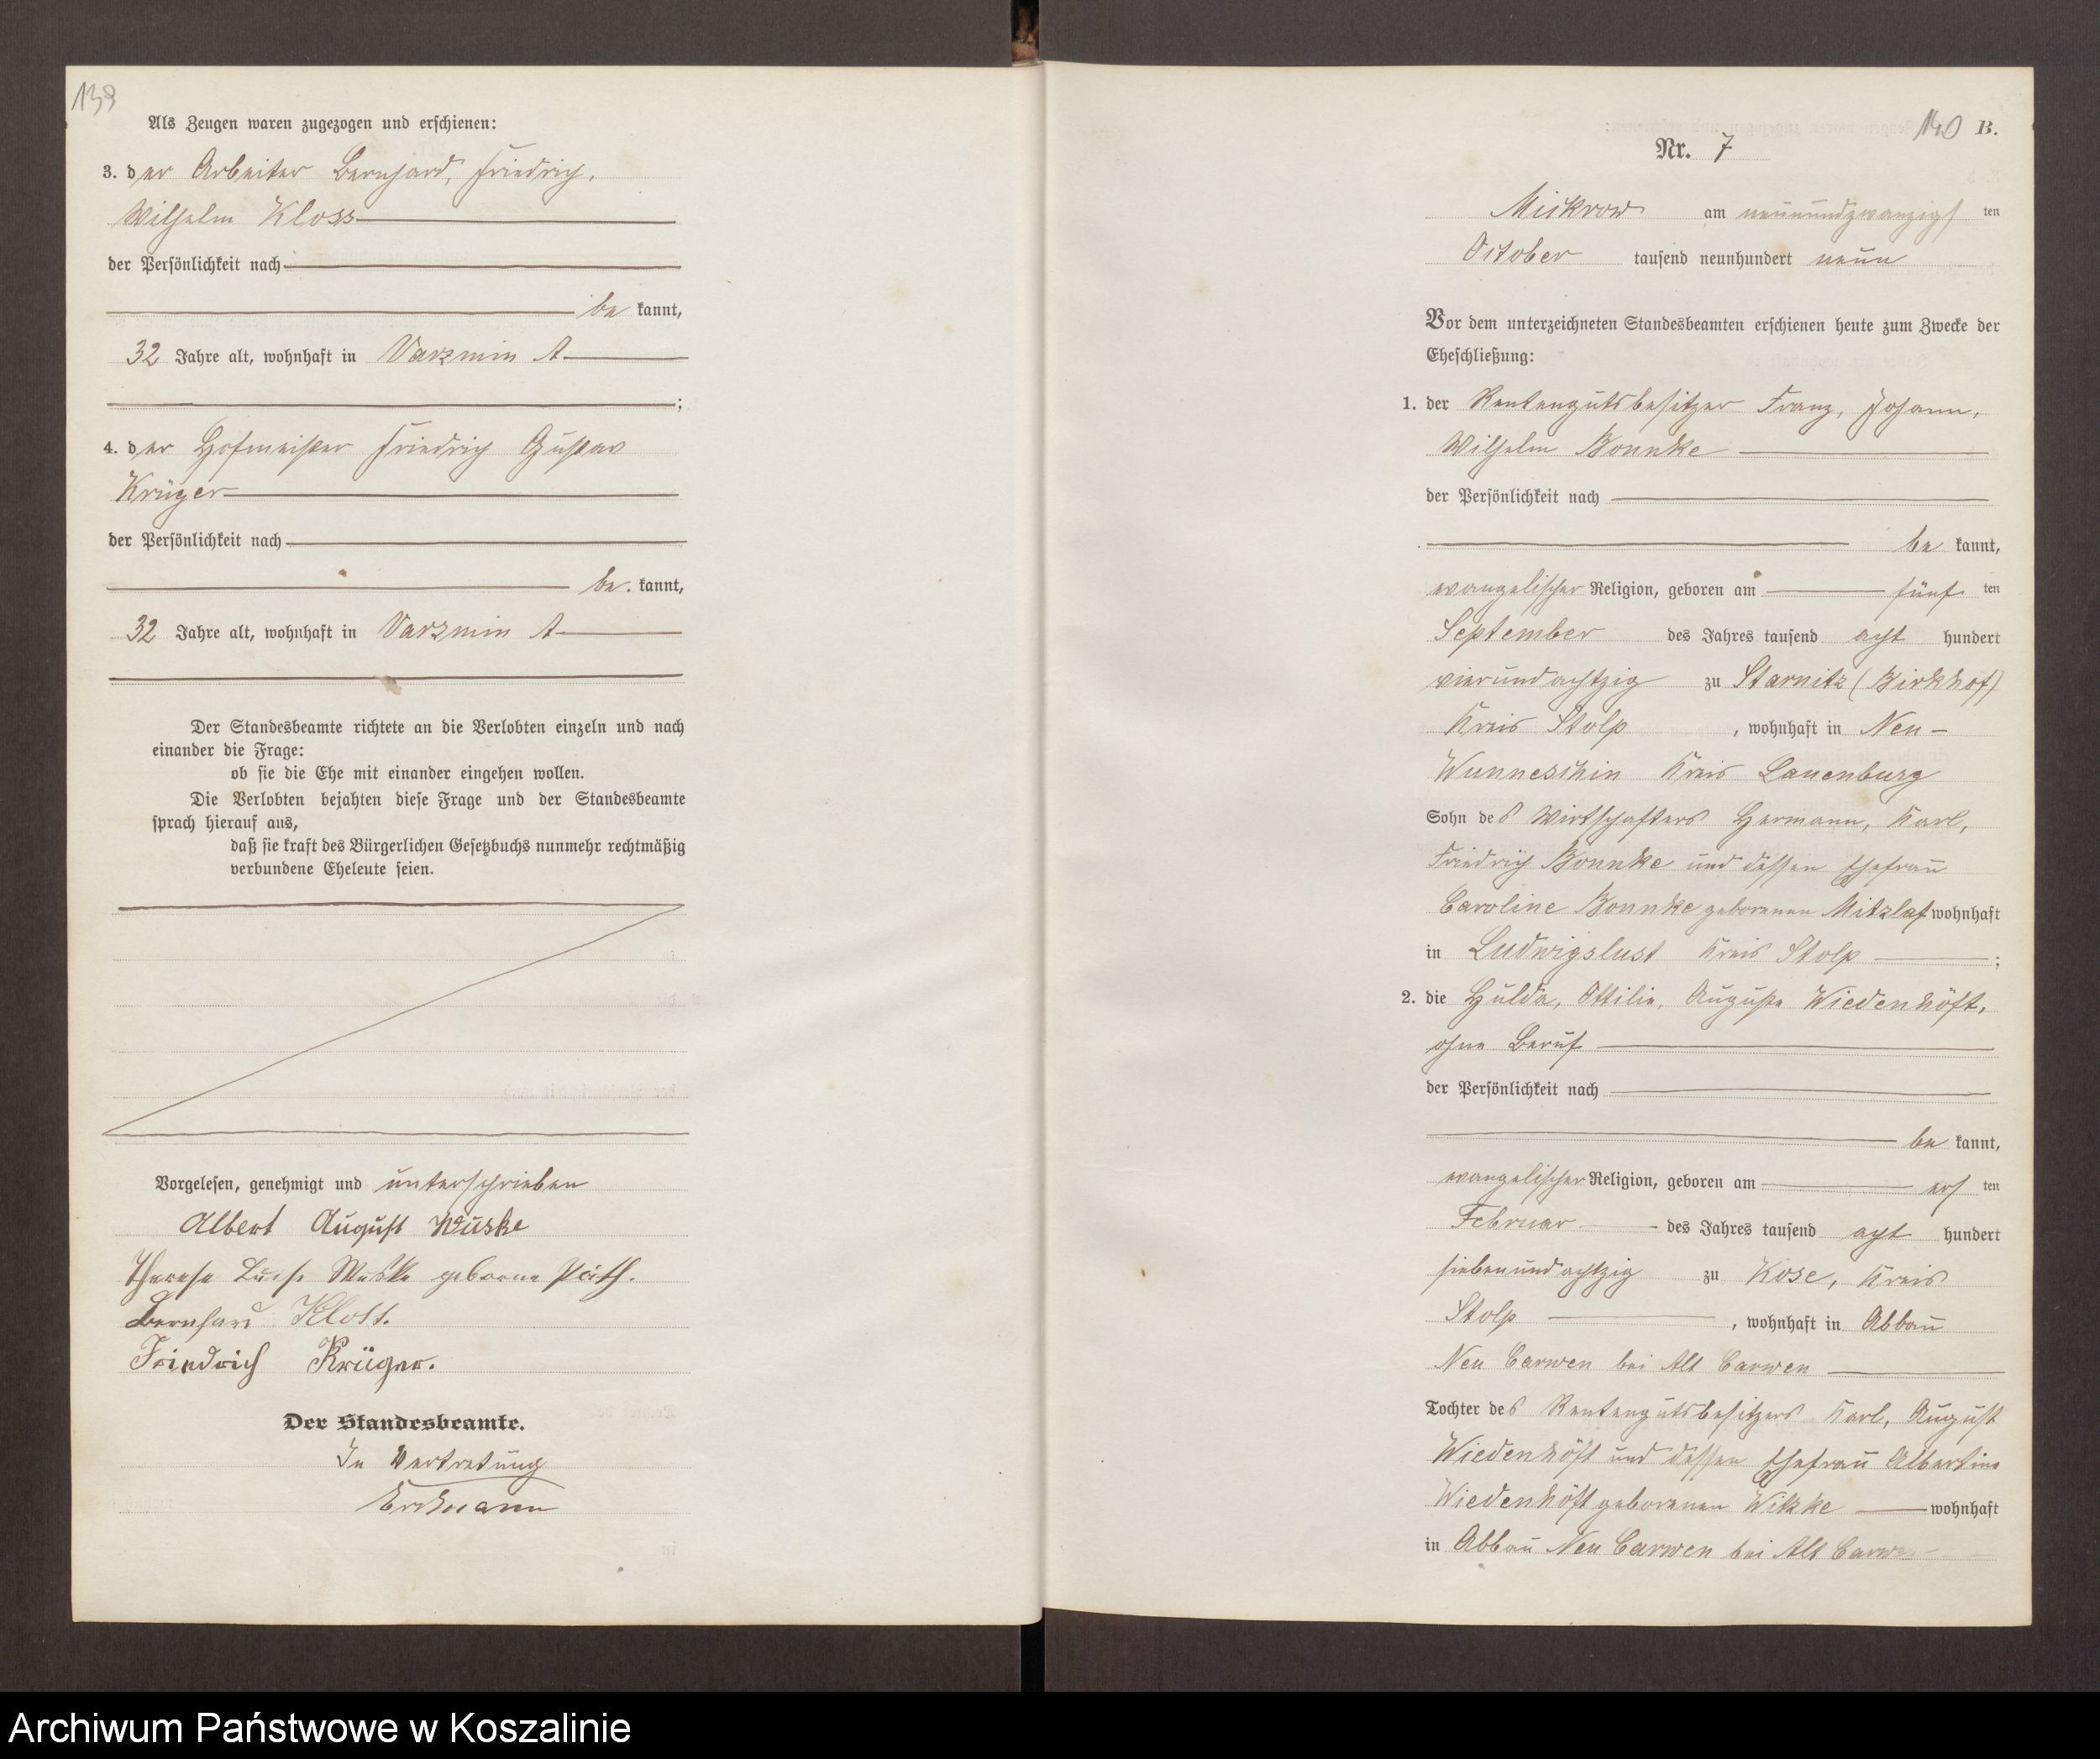 139
Als Zeugen waren zugezogen und erschienen:
3. der Arbeiter Bernhard, Friedrich,
Wilhelm Kloss
der Persönlichkeit nach
be kannt,
32 Jahre alt, wohnhaft in Varzmin A
;
4. der Hofmeister Friedrich Gustav
Krüger
der Persönlichkeit nach
be. kannt,
32 Jahre alt, wohnhaft in Varzmin A
Der Standesbeamte richtete an die Verlobten einzeln und nach
einander die Frage:
ob sie die Ehe mit einander eingehen wollen.
Die Verlobten bejahten diese Frage und der Standesbeamte
sprach hierauf aus,
daß sie kraft des Bürgerlichen Gesetzbuchs nunmehr rechtmäßig
verbundene Eheleute seien.
Vorgelesen, genehmigt und unterschrieben
Albert August Wuske
Therese Luise Wuske geborne Päth.
Bernhard Kloss.
Friedrich Krüger.
Der Standesbeamte.
In Vertretung
140 B.
Nr. 7
Mickrow am neunundzwanzigs ten
October tausend neunhundert neun
Vor dem unterzeichneten Standesbeamten erschienen heute zum Zwecke der
Eheschließung:
1. der Rentengutsbesitzer Franz, Johann,
Wilhelm Bonnke
der Persönlichkeit nach
be kannt,
evangelischer Religion, geboren am fünf ten
September des Jahres tausend acht hundert
vierundachtzig zu Starnitz (Birkhof)
Kreis Stolp , wohnhaft in Neu-
Wunneschin Kreis Lauenburg
Sohn des Wirtschafters Hermann, Karl,
Friedrich Bonnke und dessen Ehefrau
Caroline Bonnke geborenen Mitzlaf wohnhaft
in Ludwigslust Kreis Stolp ;
2. die Hulda, Ottilie, Auguste Wiedenhöft,
ohne Beruf
der Persönlichkeit nach
be kannt,
evangelischer Religion, geboren am ers ten
Februar des Jahres tausend acht hundert
siebenundachtzig zu Kose, Kreis
Stolp , wohnhaft in Abbau
Neu Carwen bei Alt Carwen
Tochter des Rentengutsbesitzers Karl, August
Wiedenhöft und dessen Ehefrau Albertine
Wiedenhöft geborenen Wikke wohnhaft
in Abbau Neu Carwen bei Alt Carwen
Archiwum Państwowe w Koszalinie